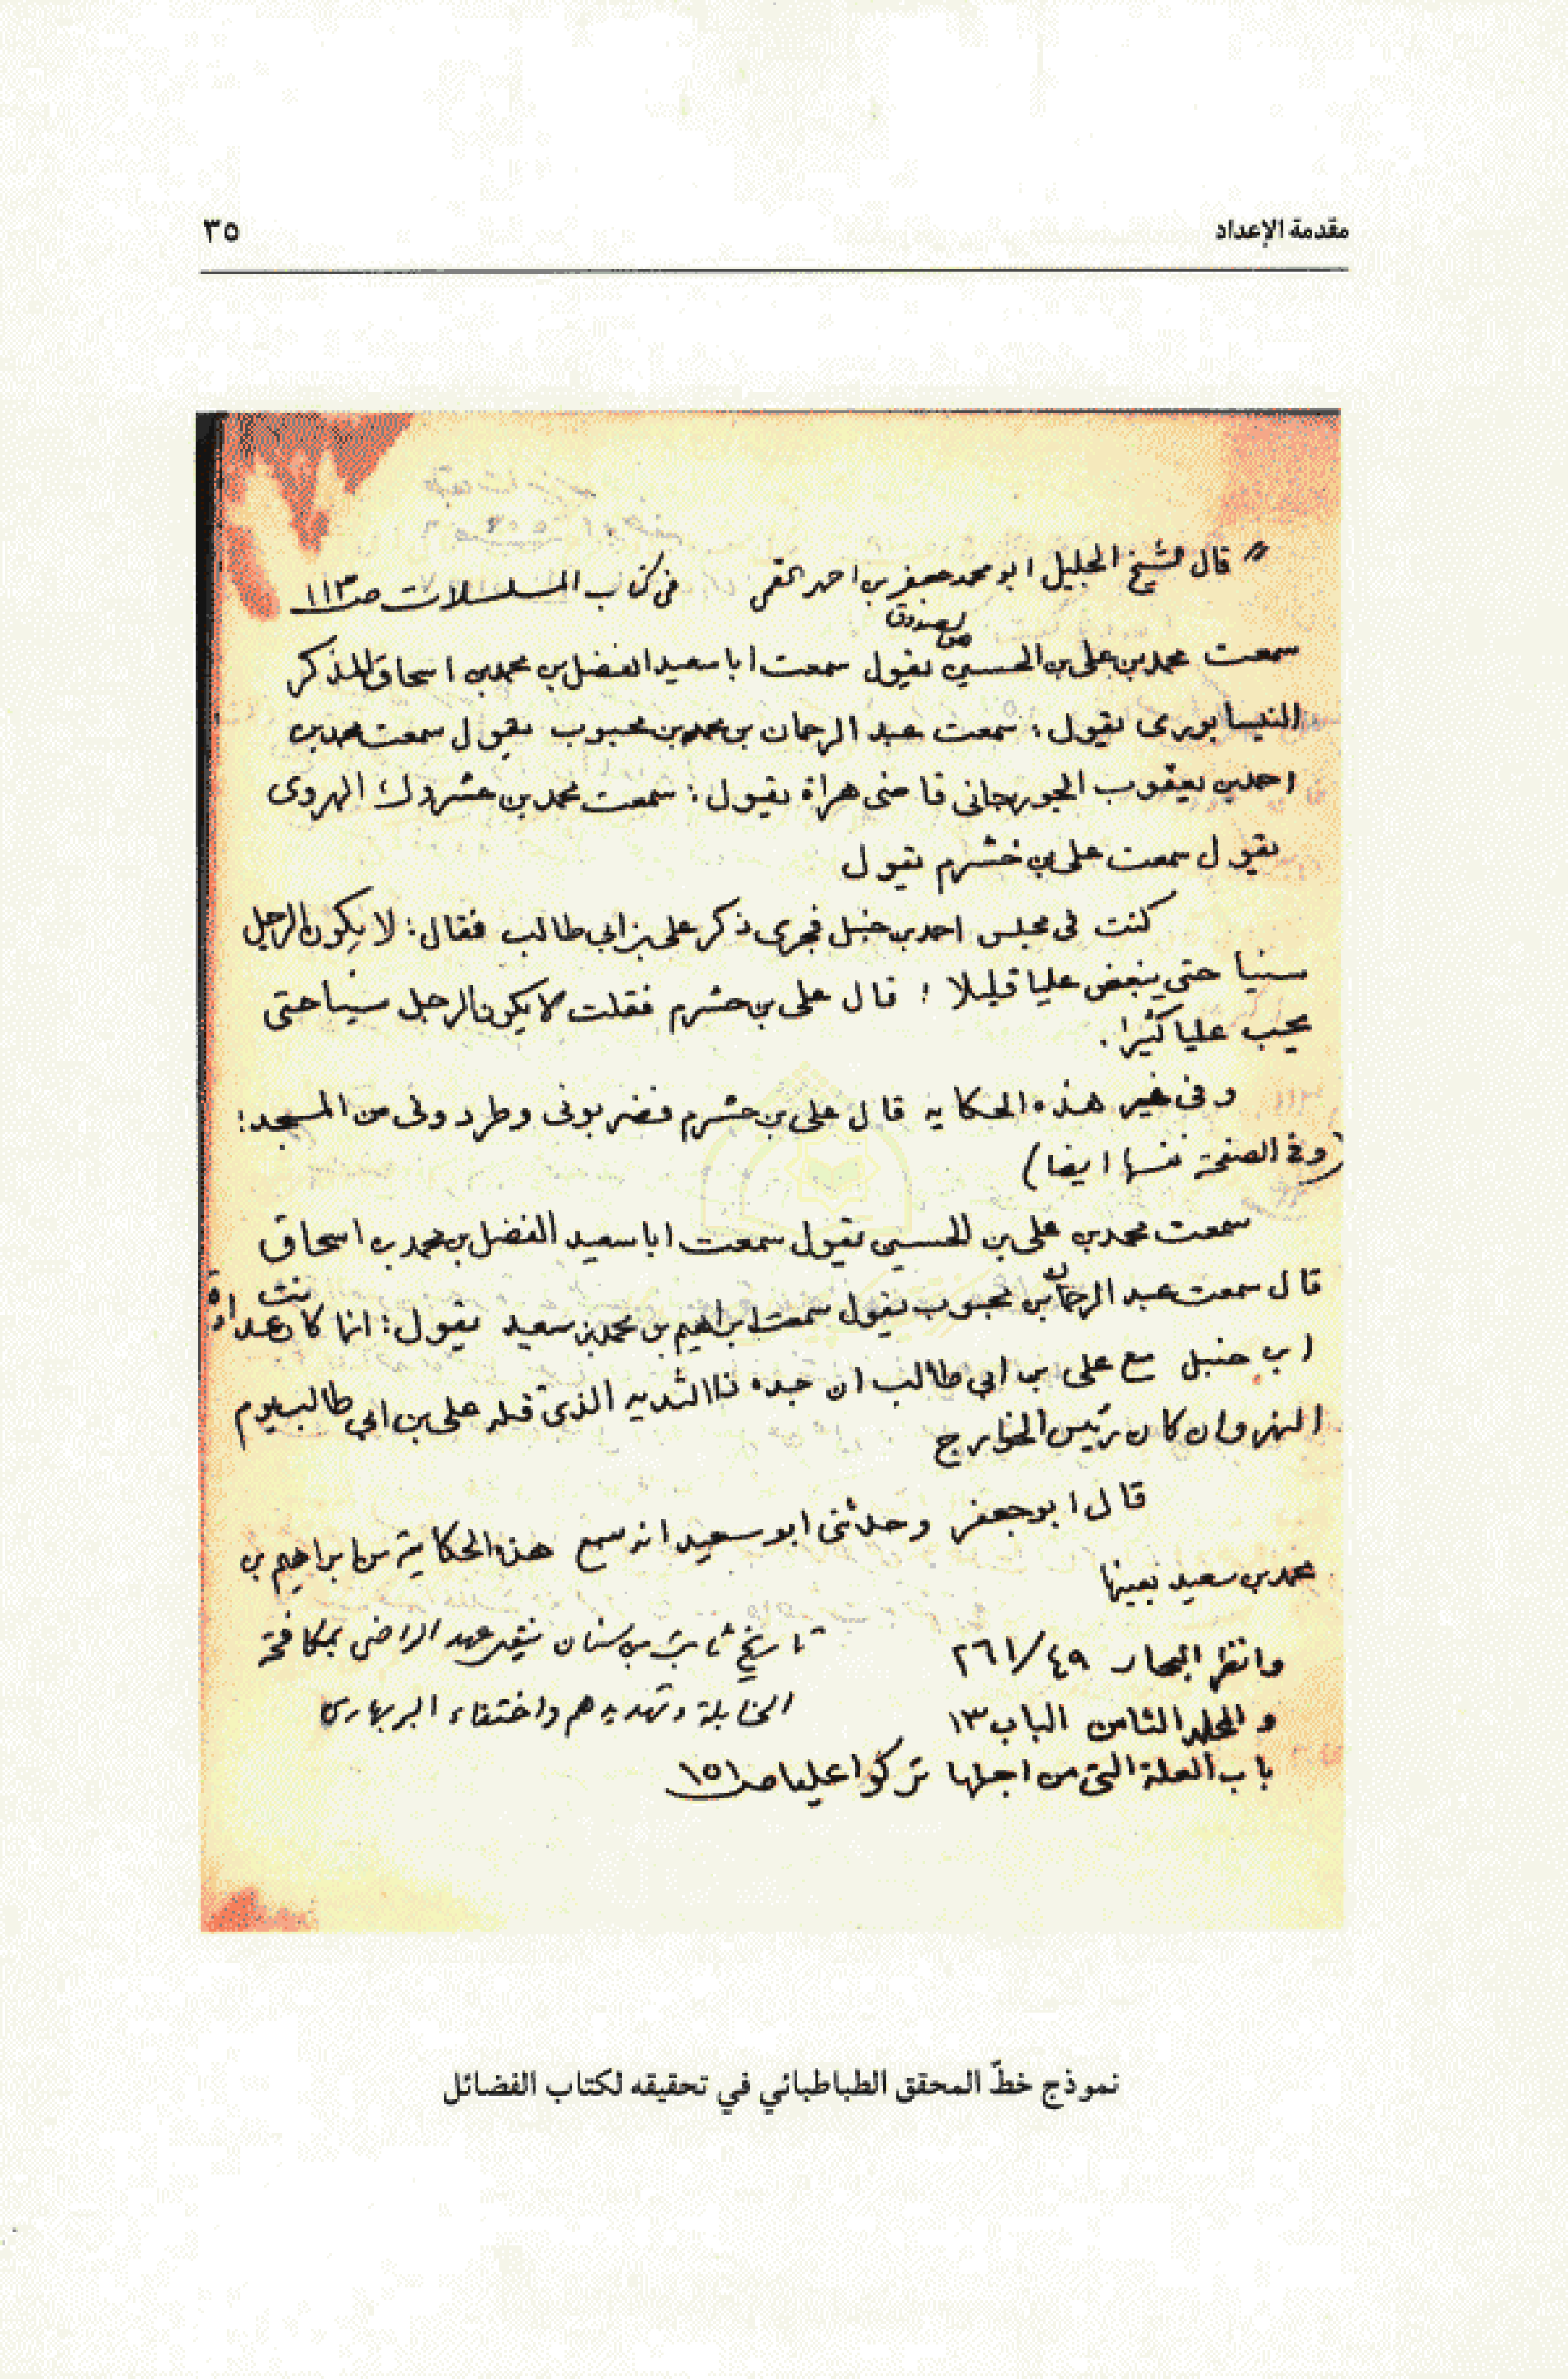 مقدمة الإعداد
٣٥
قال الشيخ الجليل ابو محمد جعفر بن احمد القمى فى كتاب المسلسلات ص ١١٣
الصدوق
سمعت محمد بن على بن الحسين يقول سمعت ابا سعيد الفضل بن محمد بن اسحاق المذكر
النيسابورى يقول: سمعت عبد الرحمان بن محمد بن محبوب يقول سمعت محمد بن
احمد بن يعقوب الجورجانى قاضى هراة يقول: سمعت محمد بن عشروك الهروى
يقول سمعت على بن خشرم يقول
كنت فى مجلس احمد بن حنبل فجرى ذكر على بن ابى طالب فقال: لا يكون الرجل
سنيا حتى يبغض عليا قليلا؛ قال على بن حشرم فقلت لا يكون الرجل سنيا حتى
يحب عليا كثيرا.
وفى غير هذه الحكايه قال على بن حشرم فضربونى وطردونى من المسجد:
(وفى الصفحة نفسها ايضا)
سمعت محمد بن على بن الحسين يقول سمعت ابا سعيد الفضل بن محمد بن اسحاق
قال سمعت عبد الرحمان بن محبوب يقول سمعت ابراهيم بن محمد بن سعيد يقول: انما كانت عداوة
ابن حنبل مع على بن ابى طالب ان جده ذا الثديه الذى قتله على بن ابى طالب يوم
النهروان كان رئيس الخوارج
قال ابو جعفر وحدثنى ابو سعيد انه سمع هذه الحكاية من ابراهيم بن
محمد بن سعيد بعينها
وانظر البحار ٤٩/٢٦١
والمجلد الثامن الباب ١٣
باب العلة التى من اجلها تركوا عليا ص ١٥١
تاريخ ثابت بن سنان عهد الراضى بمكافحة
الحنابلة وتهديدهم واختفاء البربهارى
نموذج خطّ المحقق الطباطبائي في تحقيقه لكتاب الفضائل